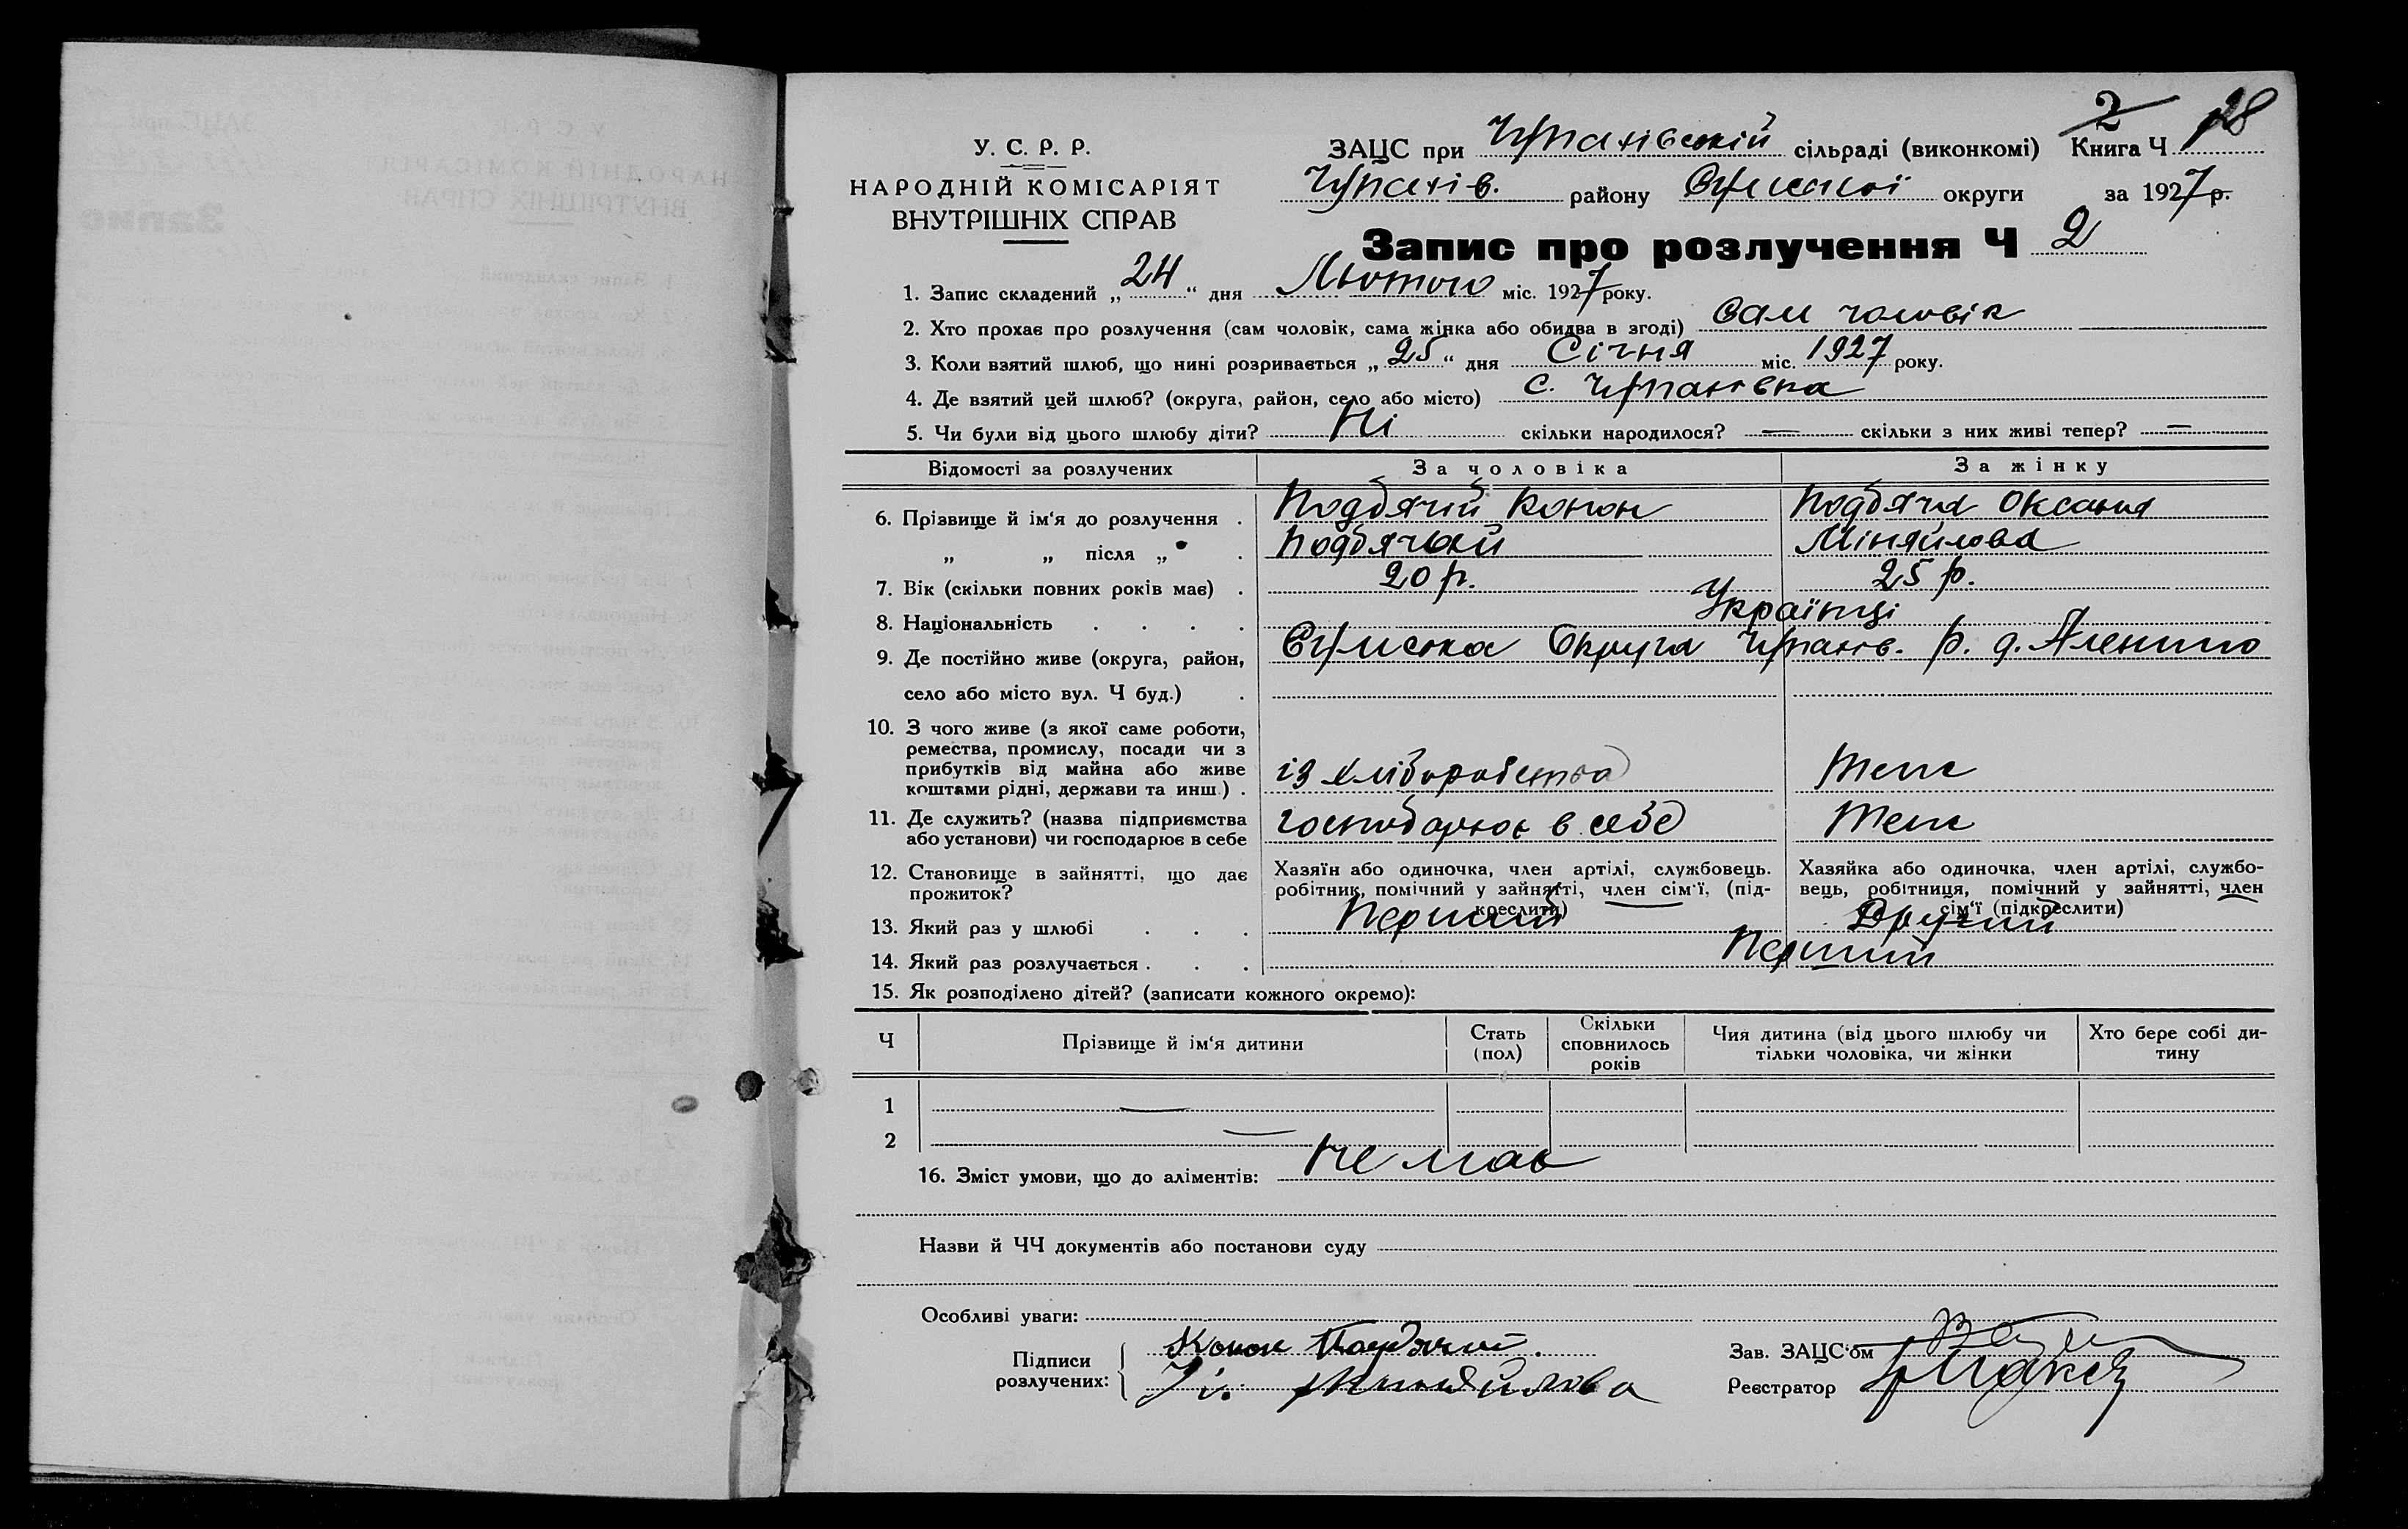 2 28
У. С. Р. Р.
НАРОДНІЙ КОМІСАРІЯТ
ВНУТРІШНІХ СПРАВ
ЗАЦС при Чупахівській сільраді (виконкомі) Книга Ч
Чупахів. району Сумської округи за 1927 р.
Запис про розлучення Ч 2
1. Запис складений „ 24 “ дня Лютого міс. 1927 року.
2. Хто прохає про розлучення (сам чоловік, сама жінка або обидва в згоді) Сам чоловік
3. Коли взятий шлюб, що нині розривається „ 25 “ дня Січня міс. 1927 року.
4. Де взятий цей шлюб? (округа, район, село або місто) с. Чупахівка
5. Чи були від цього шлюбу діти? Ні скільки народилося? — скільки з них живі тепер? —
Відомості за розлучених За чоловіка За жінку
6. Прізвище й ім‘я до розлучення . Подбячій Конон Подбяча Оксана
„ „ після „ . Подбячий Міняйлова
7. Вік (скільки повних років має) . 20 р. 25 р.
8. Національність . . . . Українці
9. Де постійно живе (округа, район, Сумська Округа Чупахів. р. д.
село або місто вул. Ч буд.) .
10. З чого живе (з якої саме роботи,
ремества, промислу, посади чи з
прибутків від майна або живе
коштами рідні, держави та инш.) . із хліборобства Теж
11. Де служить? (назва підприємства
або установи) чи господарює в себе господарює в себе Теж
12. Становище в зайнятті, що дає
прожиток?
Хазяїн або одиночка, член артілі, службовець.
робітник, помічний у зайнятті, член сім‘ї, (під-
креслити)
Хазяйка або одиночка, член артілі, службо-
вець, робітниця, помічний у зайнятті, член
сім‘ї (підкреслити)
13. Який раз у шлюбі . . . Перший Другий
14. Який раз розлучається . . . Перший
15. Як розподілено дітей? (записати кожного окремо):
Ч Прізвище й ім‘я дитини Стать (пол) Скільки сповнилось років Чия дитина (від цього шлюбу чи тільки чоловіка, чи жінки Хто бере собі ди-тину
1 —
2 —
16. Зміст умови, що до аліментів: Не має
Назви й ЧЧ документів або постанови суду
Особливі уваги:
Підписи
розлучених:
Конон Подбячий.
Міняйлова
Зав. ЗАЦС‘ом
Реєстратор